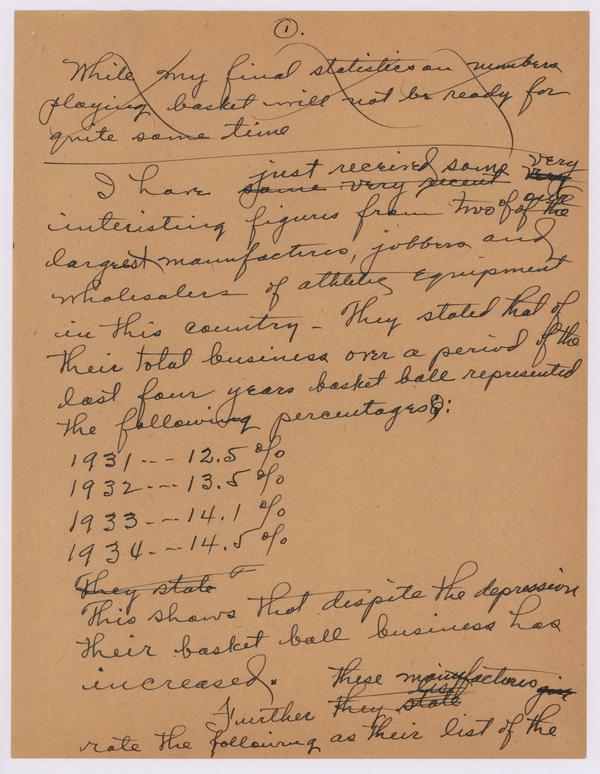 1.
While my final statistics on numbers
playing basket will not be ready for
quite some time
just received some very
I have some very recent very
interesting figures from two of our of the
largest manufactures, jobbers and
wholesalers of athletic equipment
in this country - They stated that of
their total business over a period of the
last four years basket ball represented
the following percentages:
1931 --- 12.5 %
1932 --- 13.5 %
1933 --- 14.1 %
1934 --- 14.5 %
They state
This shows that despite the depression
their basket ball business has
increased.
these manufactures give
list
Further they state
rate the following as their list of the